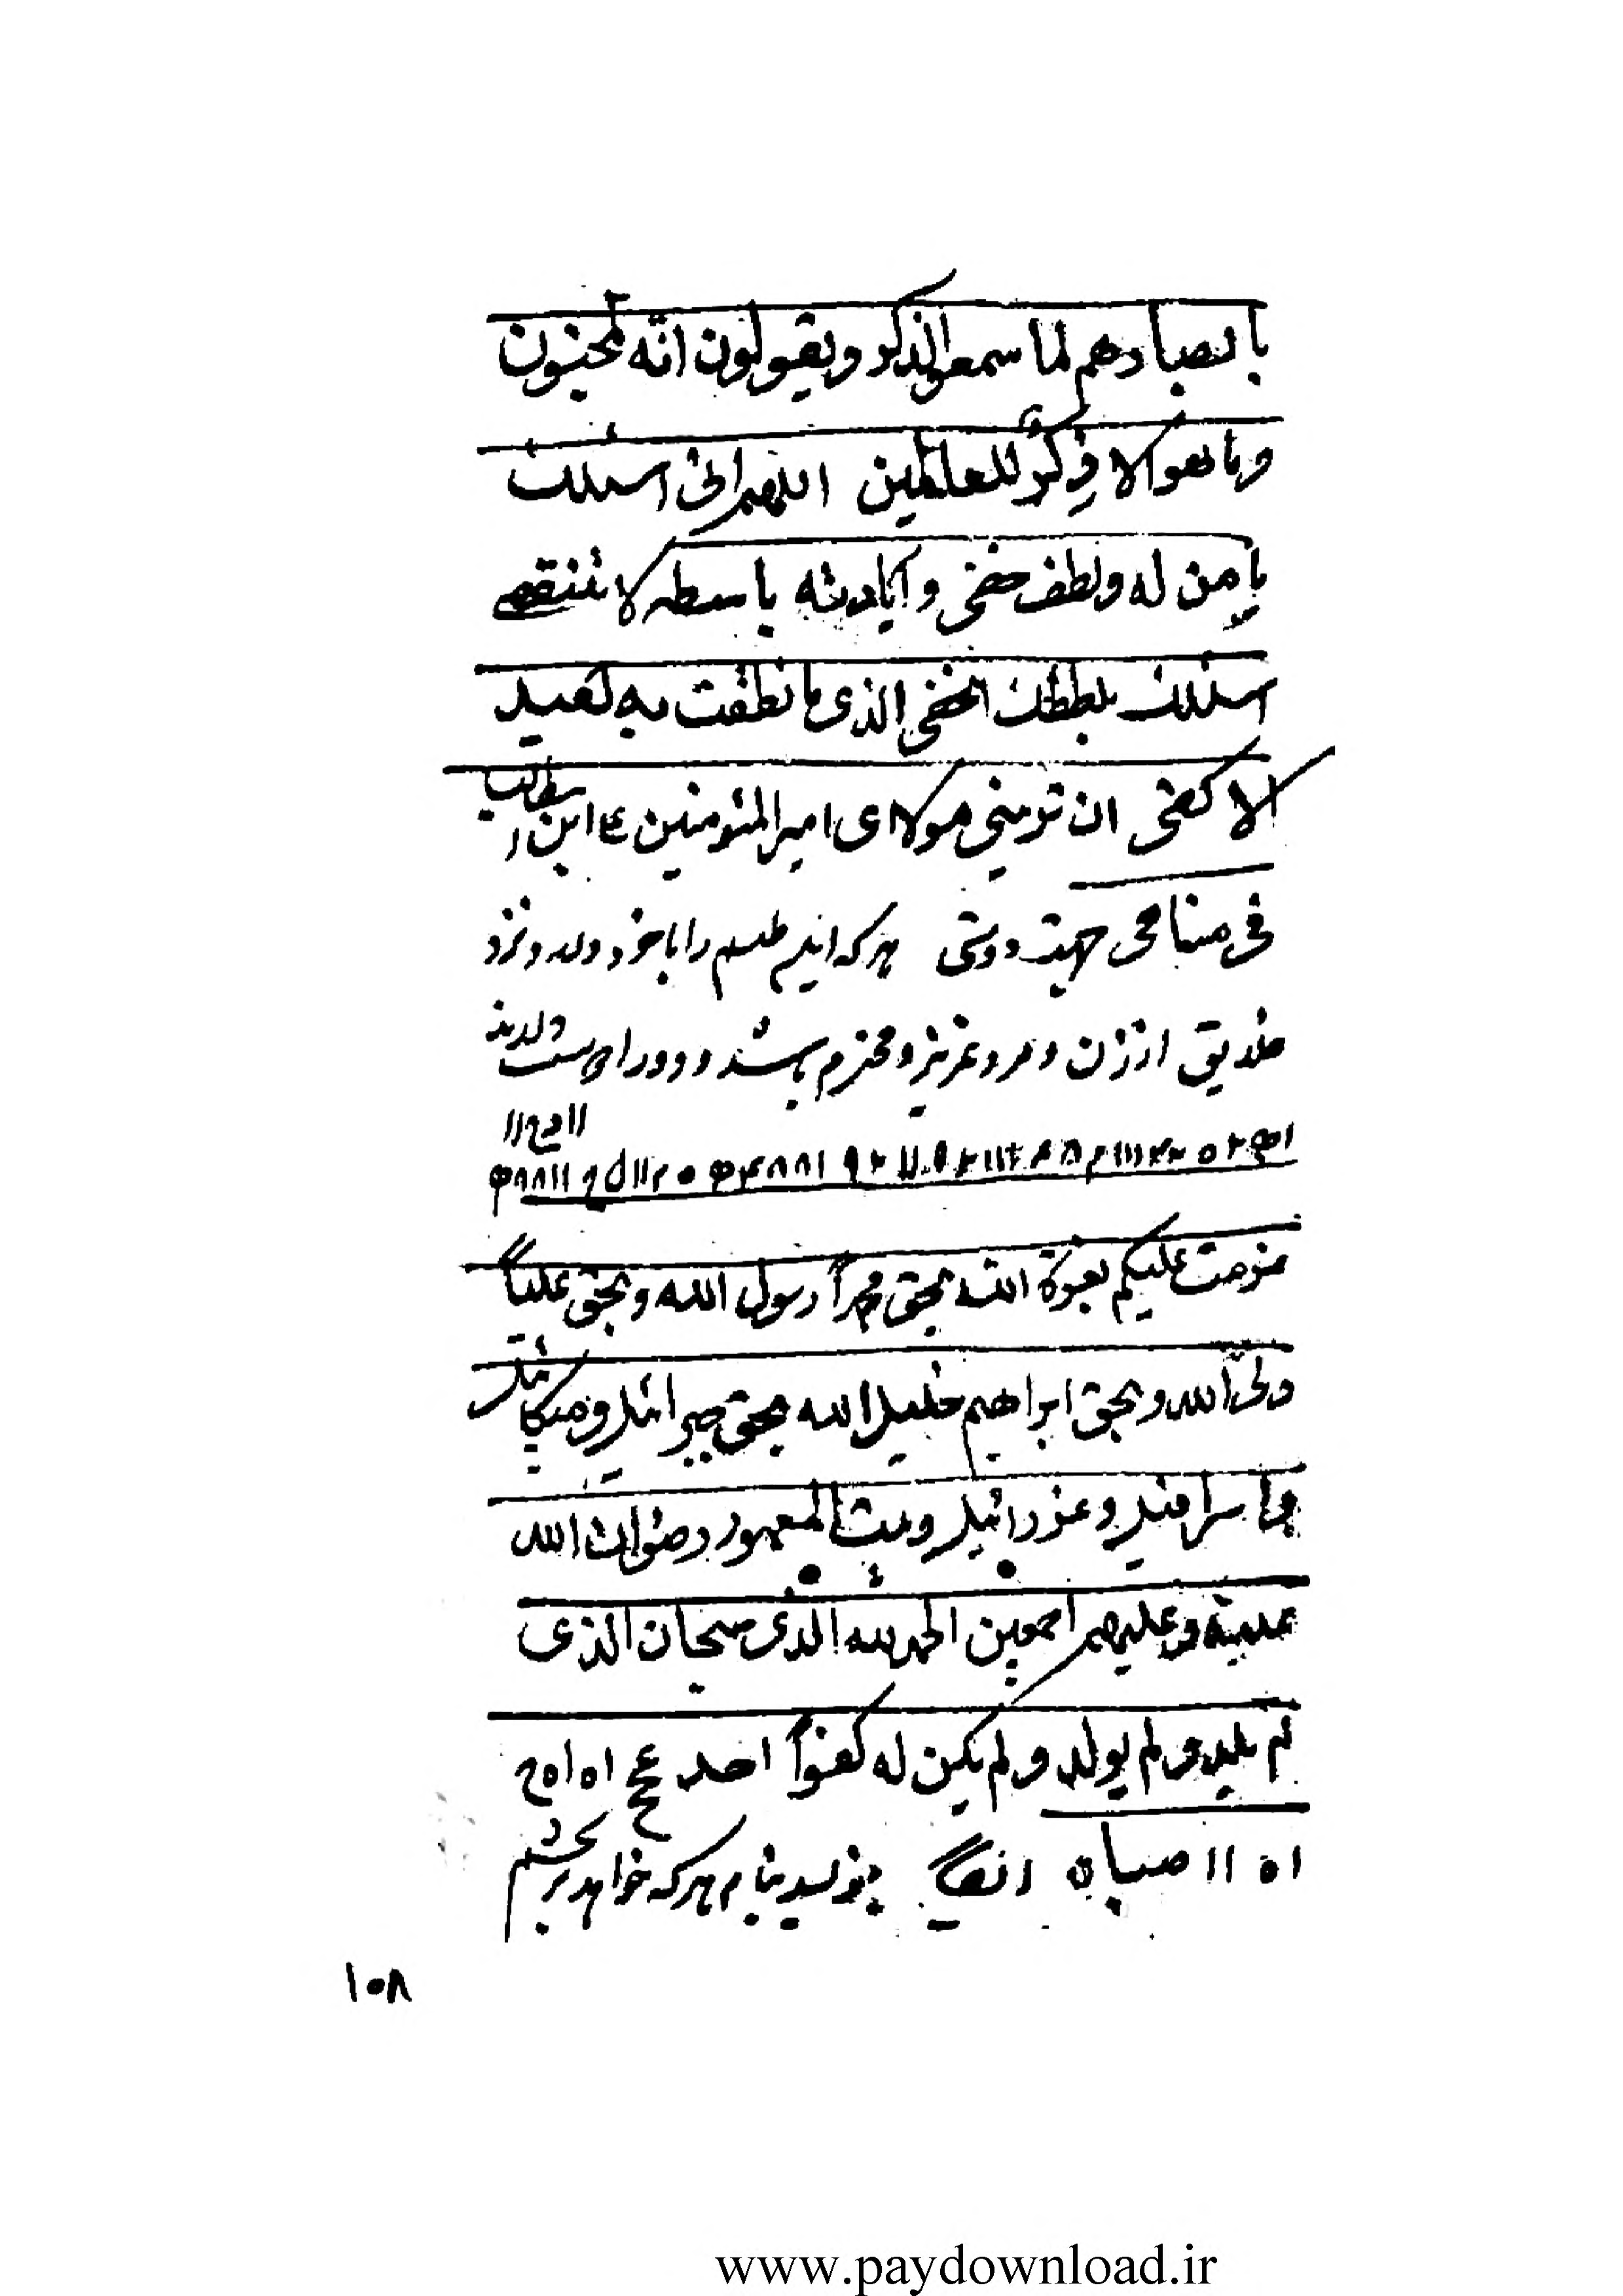 بابصارهم لما سمعوا الذکر ویقولون انّه لمجنون
وما هو الا ذِکرٌ للعالمین اللهم انی اسئلک
یا من له ولطف خفی و ایادیه باسطه لا تنقصی
اسئلک بلطفک الخفی الذی ما نطفت به لعبید
الا کفی ان ترینی مولای امیر المئومنین ع ابن ابیطالب
فی منامی جهت دوستی هرکه این طلسم را با خود دارد و نزد
خلایق از زن و مرد عزیز و محترم باشد و او را دوست دارند
عزمت علیکم بعزة الله بحق محمداً رسول الله و بحق علیاً
ولیّ الله و بحق ابراهیم خلیل الله بحق جبرائیل و میکائیل
و اسرافیل و عزرائیل و بیت المعمور رضوان الله
علیه و علیهم اجمعین الحمد لله الذی سبحان الذی
لم یلد و لم یولد و لم یکن له کفواً احد
بنویسد بنام هرکه خواهد
۱۰۸
www.paydownload.ir